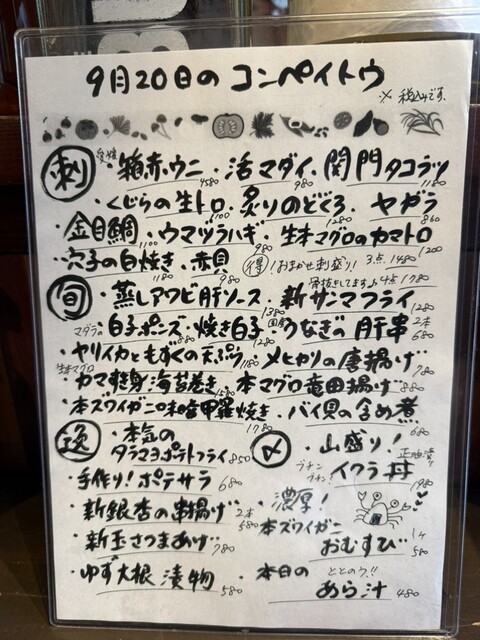 9月20日のコンペイトウ
※税込みです。
刺
愛媛・箱赤ウニ4580・活マダイ980・関門タコブツ1180
・くじらの生トロ1100・炙りのどぐろ ヤガラ860
・金目鯛1100・ウマヅラハギ980・生本マグロのカマトロ1200
穴子の白焼き1180・赤貝980 得!おまかせ刺盛り!3点1480 4点1780
旬
骨抜きしてます♪
・蒸しアワビ肝ソース1380・新サンマフライ1280
マダラ白子ポンズ・焼き白子1280 国産うなぎの肝串2本680
・ヤリイカともずくの天ぷら1180・メヒカリの唐揚げ780
生本マグロ
・カマすき身海苔巻き1580・本マグロ竜田揚げ880
・本ズワイガニの味噌甲羅焼き1780・バイ貝の含め煮680
逸
・本気のタラコヨポテトフライ850
・手作り!ポテサラ680
・新銀杏の串揚げ2本580
・新玉さつまあげ780
・ゆず大根漬物580
〆
・山盛り!正油漬り
プチンプチン!イクラ丼1980
・濃厚!
本ズワイガニおむすび1ケ580
・本日のととのウ!!あら汁480